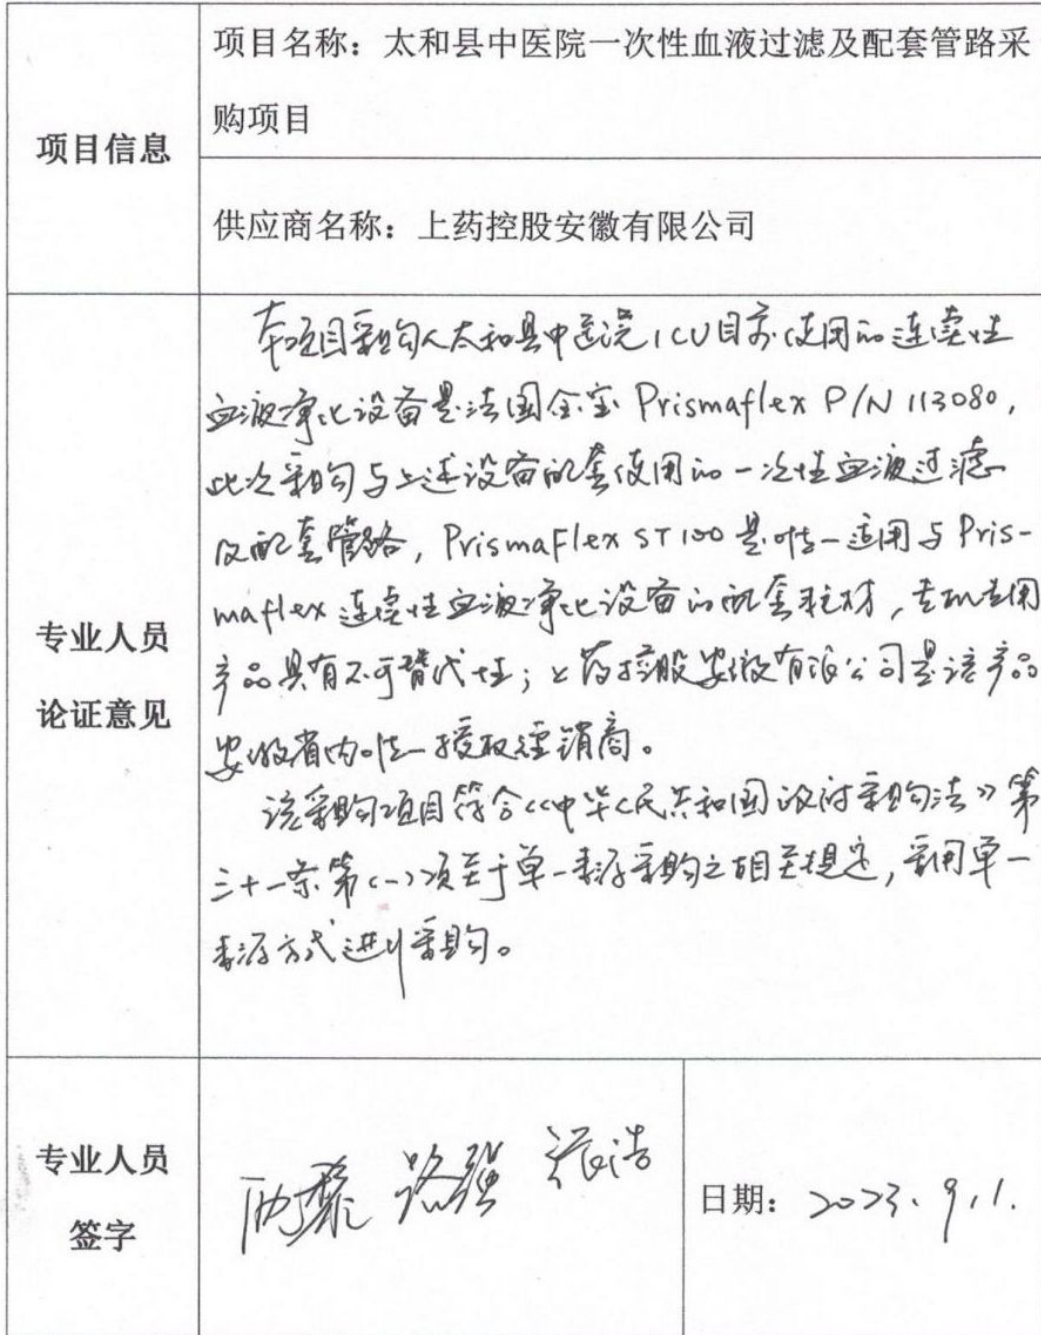 项目信息
项目名称：太和县中医院一次性血液过滤及配套管路采
购项目
供应商名称：上药控股安徽有限公司
专业人员
论证意见
本项目采购人太和县中医院ICU目前使用的连续性
血液净化设备是法国金宝 Prismaflex P/N 113080，
此次采购与上述设备配套使用的一次性血液过滤
及配套管路，PrismaFlex ST100 是唯一适用与 Pris-
maflex 连续性血液净化设备的配套耗材，专机专用
产品具有不可替代性；上药控股安徽有限公司是该产品
安徽省内唯一授权经销商。
该采购项目符合《中华人民共和国政府采购法》第
三十一条第（一）项关于单一来源采购之相关规定，采用单一
来源方式进行采购。
专业人员
签字
路强 张浩
日期：2023.9.1.